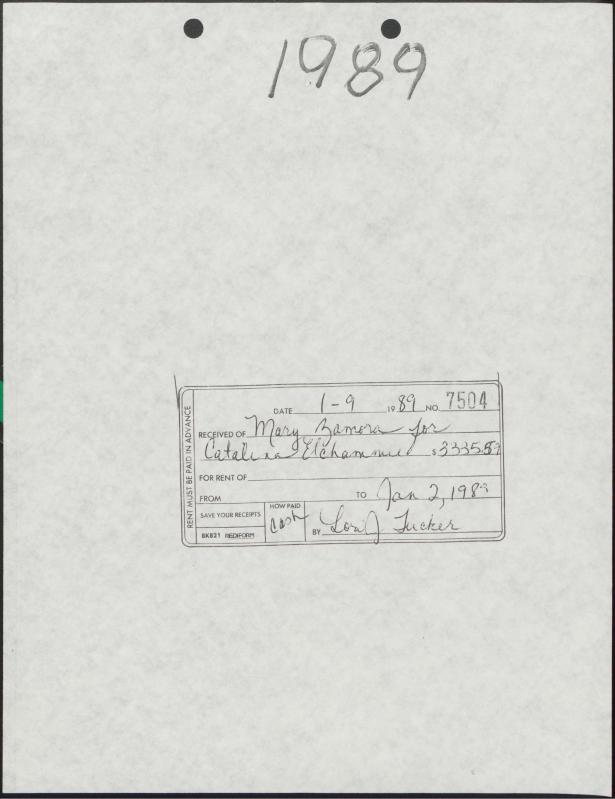 1989
RENT MUST BE PAID IN ADVANCE
DATE 1-9 1989 NO. 7504
RECEIVED OF Mary Zamora for
Catalina $3335.59
FOR RENT OF
FROM TO Jan 2, 1989
SAVE YOUR RECEIPTS HOW PAID
cash BY Lora J Tucker
8K821 REDIFORM